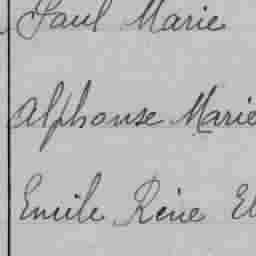 Paul Marie
Alphonse Marie
Emile Réné El